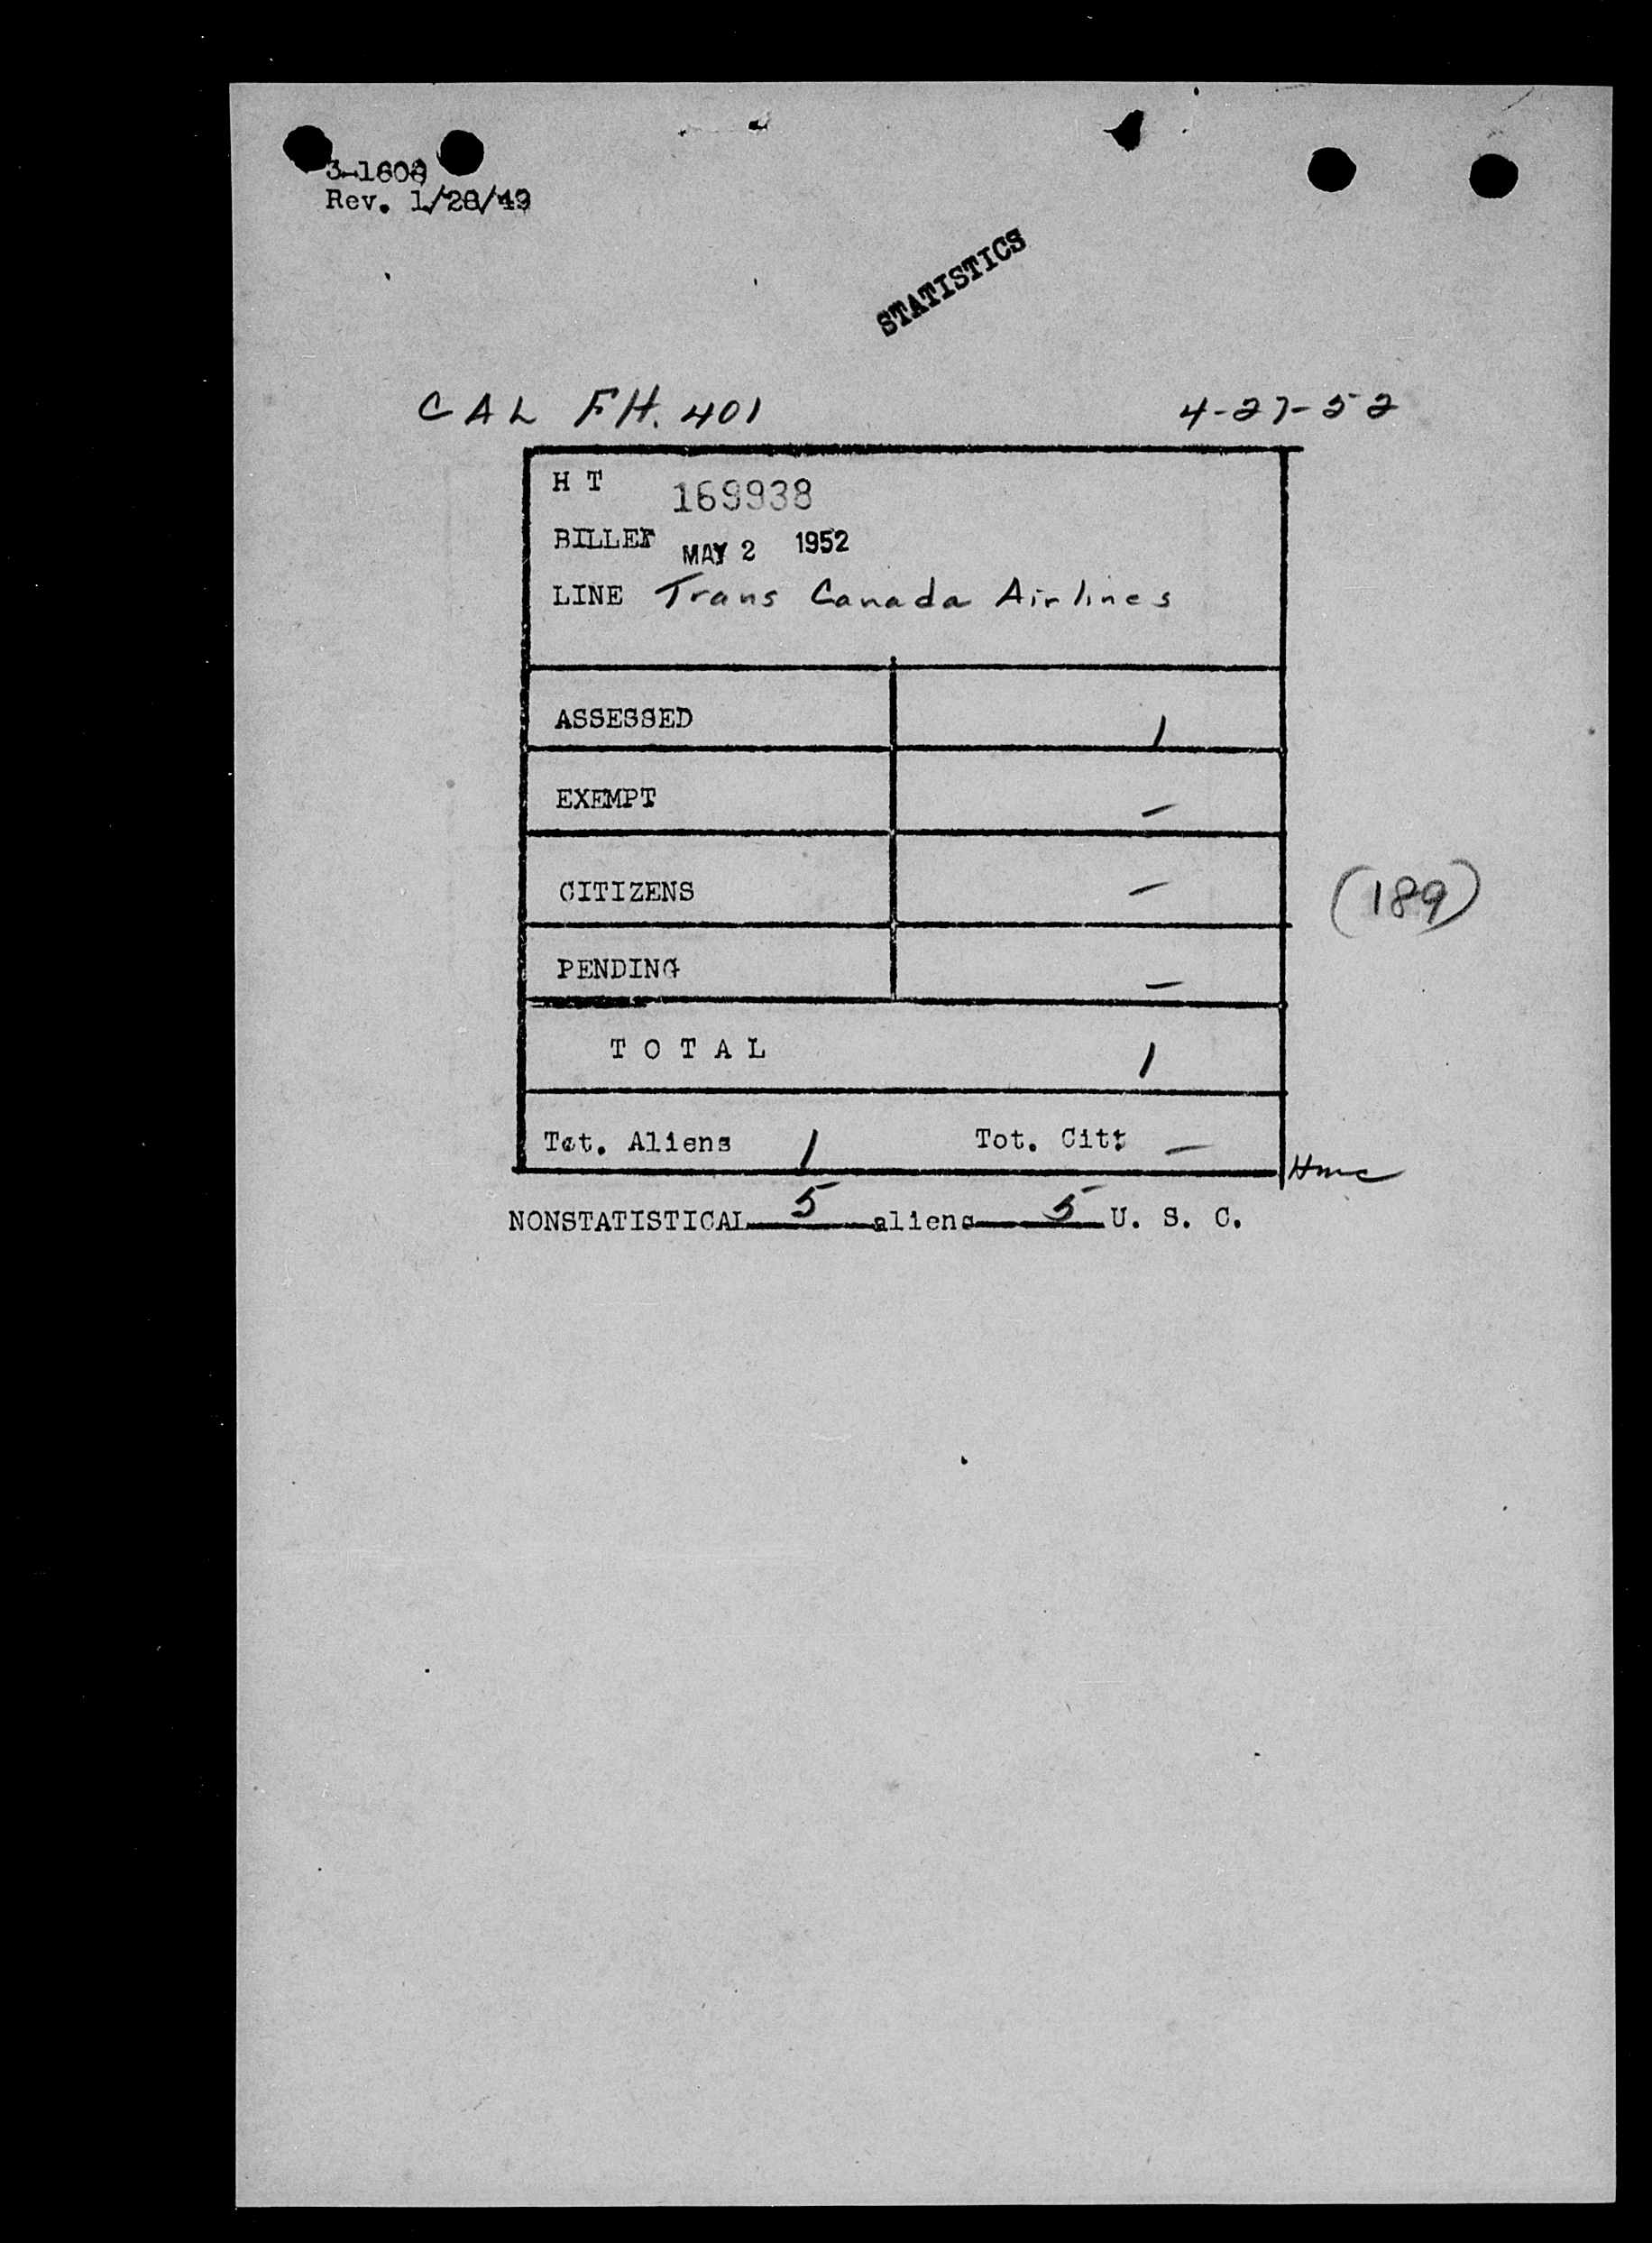 3-1608
Rev. 1/28/49
STATISTICS
CAL FH. 401 4-27-52
H T 169938
BILLET MAY 2 1952
LINE Trans Canada Airlines
ASSESSED 1
EXEMPT –
CITIZENS – (189)
PENDING –
T O T A L 1
Tot. Aliens 1 Tot. Cit: –
Hmc
NONSTATISTICAL 5 aliens 5 U. S. C.